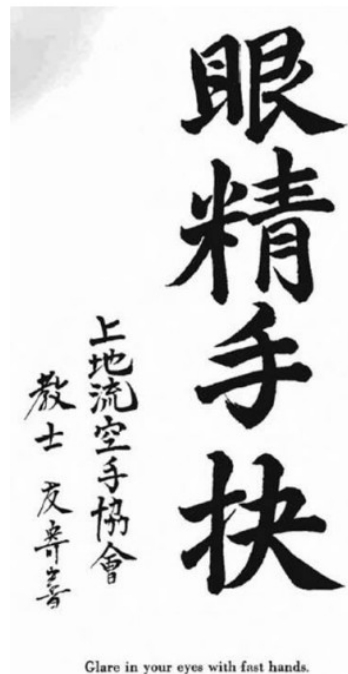 眼精手抉
上地流空手協會
教士 友寄
Glare in your eyes with fast hands.